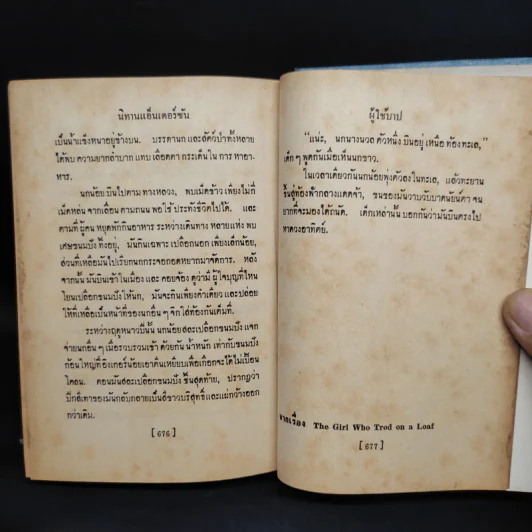 นิทานแอ็นเดอร์ซัน
เป็นน้ำแข็งหนาอยู่ข้างบน. บรรดานก และสัตว์ป่าทั้งหลาย
ได้พบ ความยากลำบาก แทบ เลือดตา กระเด็นใน การ หาอา-
หาร.
นกน้อยบินไปตาม ทางหลวง, พบเม็ดข้าว เพียงไม่กี่
เม็ดหล่น จากเลื่อน ตามถนน พอใช้ ประทังชีวิตไปได้. และ
ตามที่ ผู้คน หยุดพักกินอาหาร ระหว่างเดินทาง หลายแห่ง พบ
เศษขนมปัง ทิ้งอยู่, มันกินเฉพาะ เปลือกนอก เพียงเล็กน้อย,
ส่วนที่เหลือมันไปเรียกนกกระจอกอดหยากมาจัดการ. หลัง
จากนั้น มันบินเข้าในเมือง และ คอยจ้อง ดูว่ามี ผู้ใจบุญที่ไหน
โยนเปลือกขนมปังให้นก, มันจะกินเพียงคำเดียว และปล่อย
ให้ที่เหลือเป็นหน้าที่ของนกอื่น ๆ จิกใส่ท้องกันเต็มที่.
ระหว่างฤดูหนาวปีนั้น นกน้อยสละเปลือกขนมปัง แจก
จ่ายนกอื่น ๆ เมื่อรวบรวมเข้า ด้วยกัน น้ำหนัก เท่ากับขนมปัง
ก้อนใหญ่ที่อิงเกอร์น้อยเอาตีนเหยียบเพื่อเกือกจะได้ไม่เปื้อน
โคลน. ตอนมันสละเปลือกขนมปัง ชิ้นสุดท้าย, ปรากฏว่า
ปีกสีเทาของมันกลับกลายเป็นสีขาวบริสุทธิ์ และแผ่กว้างออก
กว่าเดิม.
[ 676 ]
ผู้ใช้บาป
“แน่ะ, นกนางนวล ตัวหนึ่ง บินอยู่ เหนือ ท้องทะเล,”
เด็ก ๆ พูดกันเมื่อเห็นนกขาว.
ในเวลาเดียวกันนกน้อยพุ่งตัวลงในทะเล, แล้วทะยาน
ขึ้นสู่ท้องฟ้ากลางแดดจ้า, ขนของมันวาบวับบาดนัยน์ตา จน
ยากที่จะมองได้ถนัด. เด็กเหล่านั้น บอกกันว่ามันบินตรงไป
หาดวงอาทิตย์.
จากเรื่อง The Girl Who Trod on a Loaf
[ 677 ]